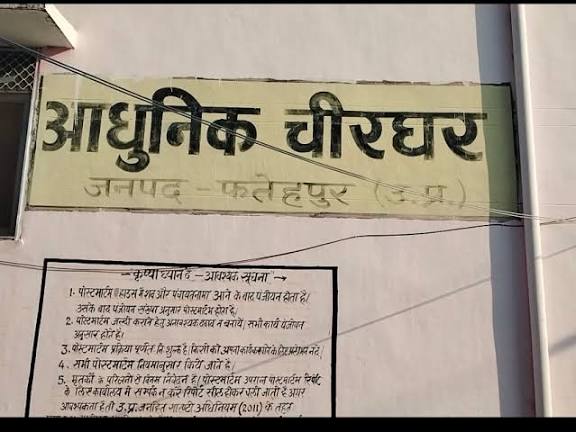 आधुनिक चीरघर
जनपद - फतेहपुर (उ.प्र.)
कृप्या ध्यान दें - आवश्यक सूचना →
1. पोस्टमार्टम हाउस में शव और पंचायतनामा आने के बाद पंजीयन होता है।
उसके बाद पंजीयन संख्या अनुसार पोस्टमार्टम होता है।
2. पोस्टमार्टम जल्दी कराने हेतु अनावश्यक दबाव न बनायें, सभी कार्य पंजीयन
अनुसार होते है।
3. पोस्टमार्टम प्रक्रिया पूर्णतः निःशुल्क है। किसी को अपना कार्य कराने के लिए
4. सभी पोस्टमार्टम नियमानुसार किये जाते है।
5. मृतकों के परिजनों से विनम्र निवेदन है। पोस्टमार्टम उपरान्त पोस्टमार्टम रिपोर्ट
के लिए कार्यालय में सम्पर्क न करें रिपोर्ट सील होकर चली जाती है अगर
आवश्यकता हेतु उ.प्र. जनहित गारन्टी अधिनियम (2011) के तहत